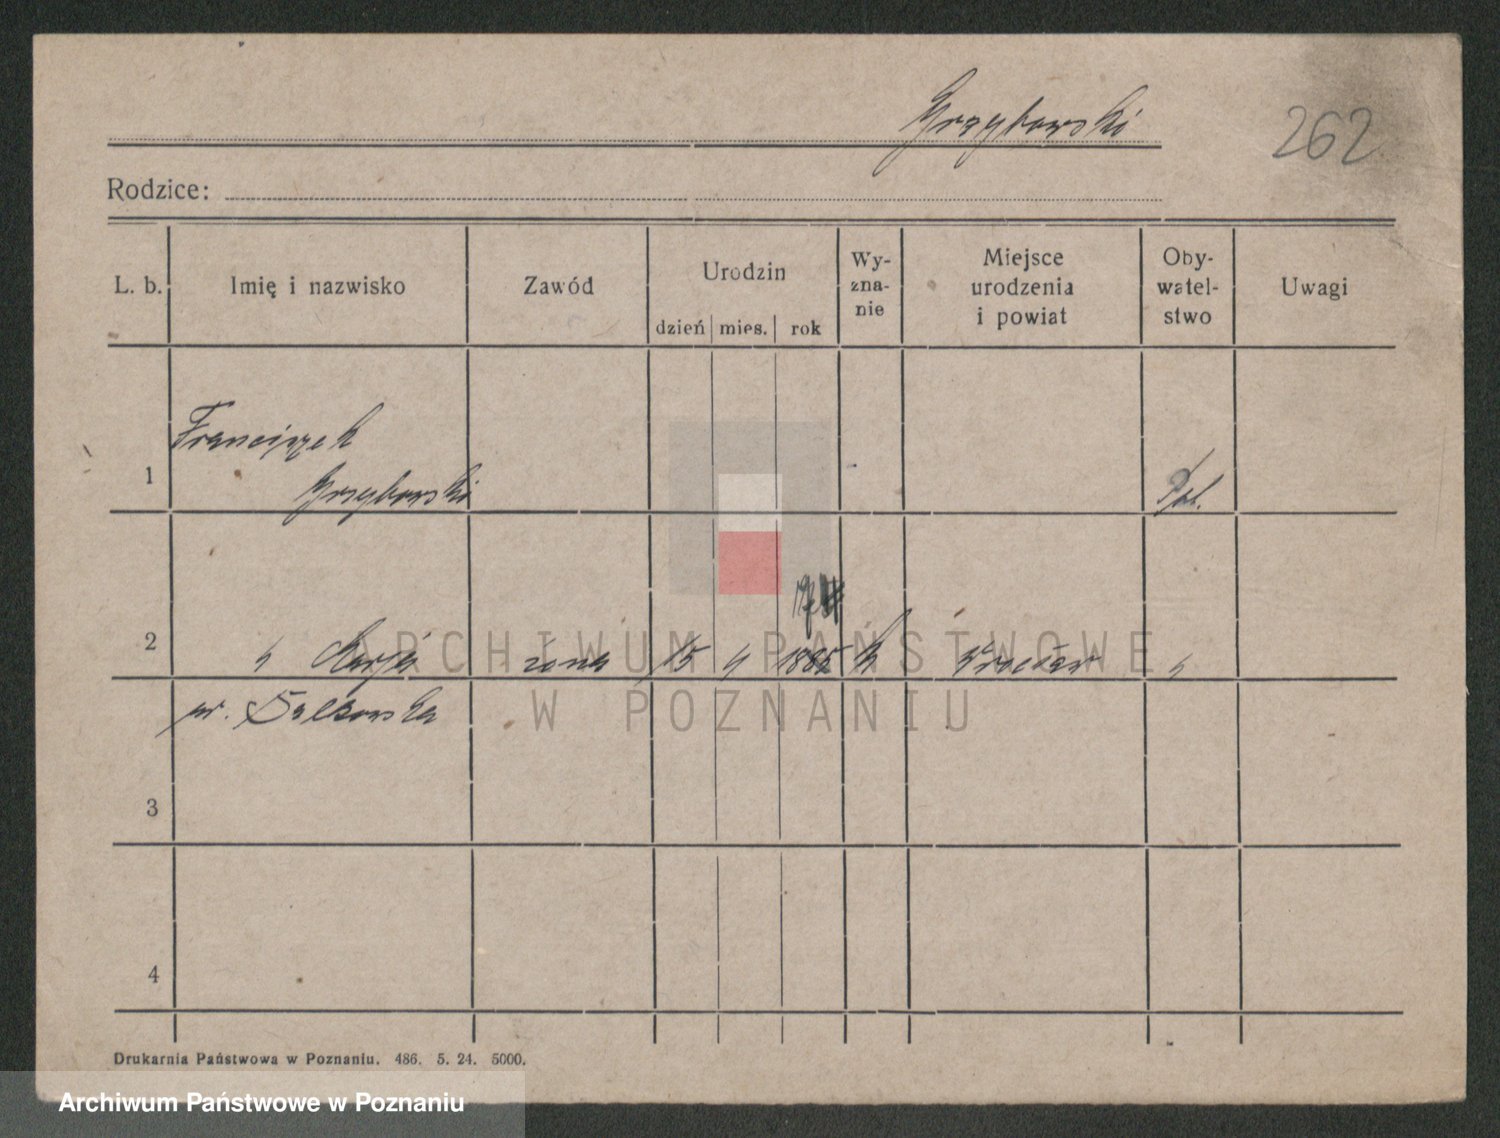 Grzybowski
262
Rodzice:
L. b. Imię i nazwisko Zawód Urodzin dzień mies. rok Wy-zna-nie Miejsce urodzenia i powiat Oby-watel-stwo Uwagi
Franciszek
1 Grzybowski Pol.
2 " Marja żona 15 9 188 k Wrocław "
3
4
Drukarnia Państwowa w Poznaniu. 486. 5. 24. 5000.
ARCHIWUM PAŃSTWOWE
W POZNANIU
Archiwum Państwowe w Poznaniu